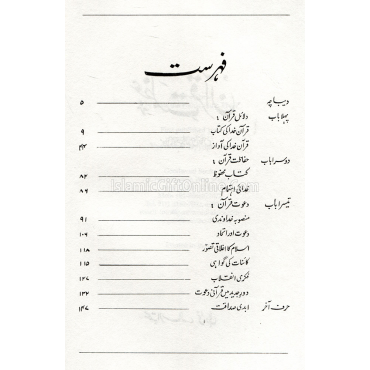 فہرست
دیباچہ ۵
پہلا باب دلائل قرآن :
قرآن خدا کی کتاب ۹
قرآن خدا کی آواز ۴۴
دوسرا باب حفاظت قرآن :
کتاب محفوظ ۸۲
خدائی اہتمام ۸۶
تیسرا باب دعوت قرآن :
منصوبۂ خداوندی ۹۱
دعوت اور اتحاد ۱۰۶
اسلام کا اخلاقی تصور ۱۱۸
کائنات کی گواہی ۱۱۵
فکری انقلاب ۱۲۷
دور جدید میں قرآنی دعوت ۱۳۲
حرف آخر ابدی صداقت ۱۴۷